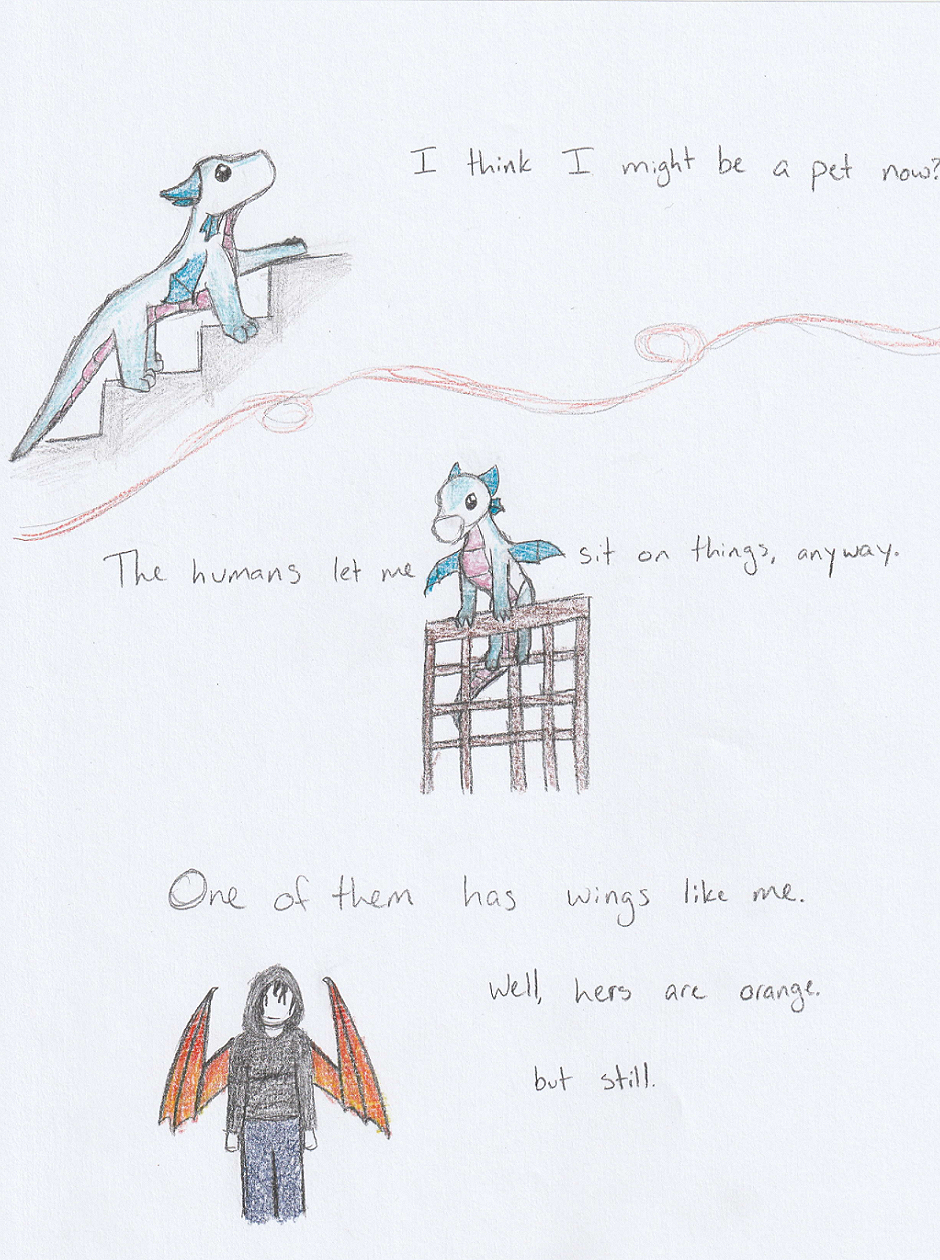 I think I might be a pet now?
The humans let me sit on things, anyway.
One of them has wings like me.
Well, hers are orange.
but still.